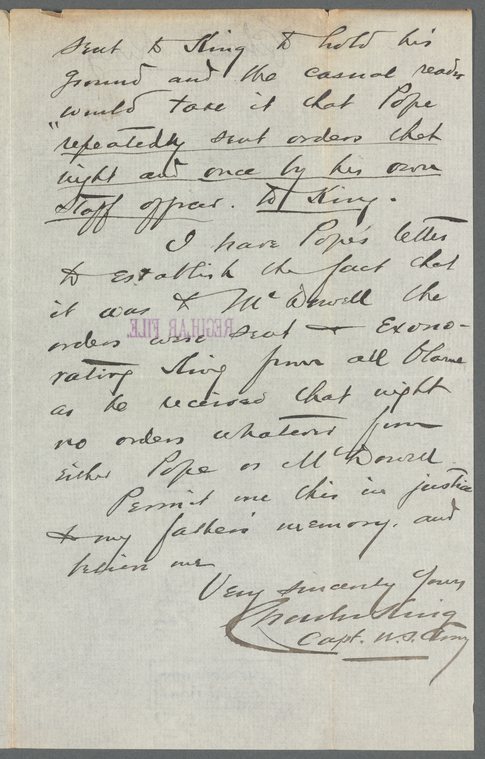 sent to King to hold his
ground and the casual reader
would take it that Pope
"repeatedly sent orders that
night and once by his own
staff officer. to King.
I have Pope's letter
to establish the fact that
it was to McDowell the
orders were sent — exono-
rating King from all blame
as he received that night
no orders whatever from
either Pope or McDowell.
Permit me this in justice
to my father's memory. and
believe me
Very sincerely Yours
Charles King
Capt. U.S. Army
REGULAR FILE.